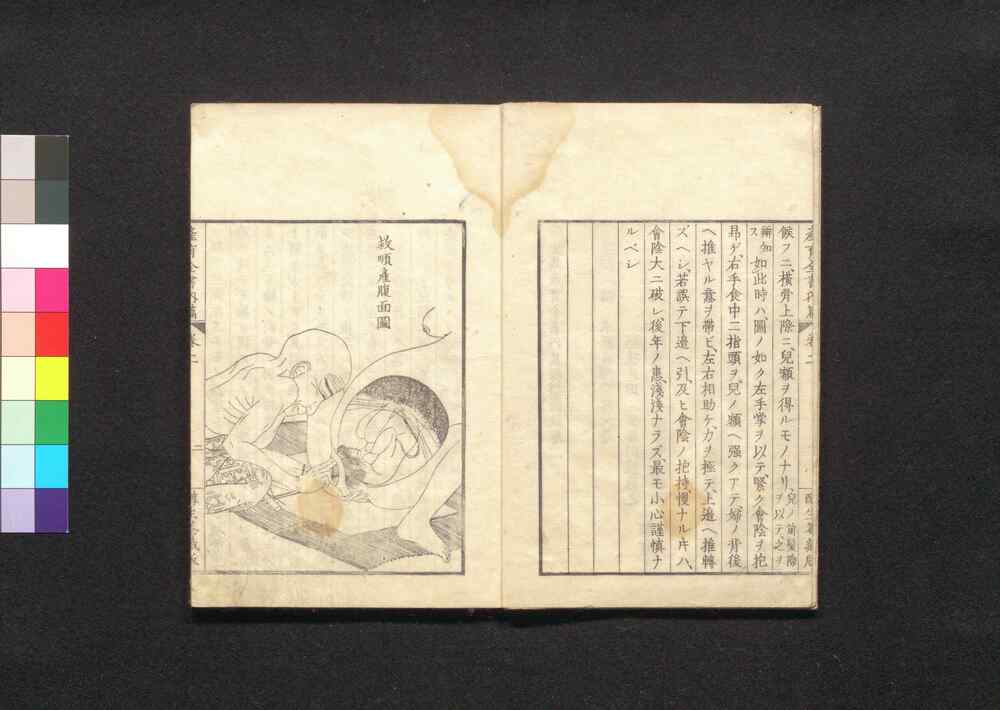 産育全書内篇 卷二
候フニ、横骨上際ニ、兒額ヲ得ルモノナリ、兒ノ前髮際ヲ以テ之ヲ
辨知ス 如此時ハ、圖ノ如ク左手掌ヲ以テ、緊ク會陰ヲ抱
昂ゲ、右手食中二指頭ヲ、兒ノ額ヘ强クアテ、婦ノ背後
ヘ推ヤル意ヲ帶ビ、左右相助ケ、力ヲ極テ、上邉ヘ推轉
ズヘシ、若誤テ下邉ヘ引、及ヒ會陰ノ抱持慢ナル片ハ、
會陰大ニ破レ、後年ノ患淺淺ナラズ、最モ小心謹慎ナ
ルベシ
救順産腹面圖
産育全書内篇 卷二